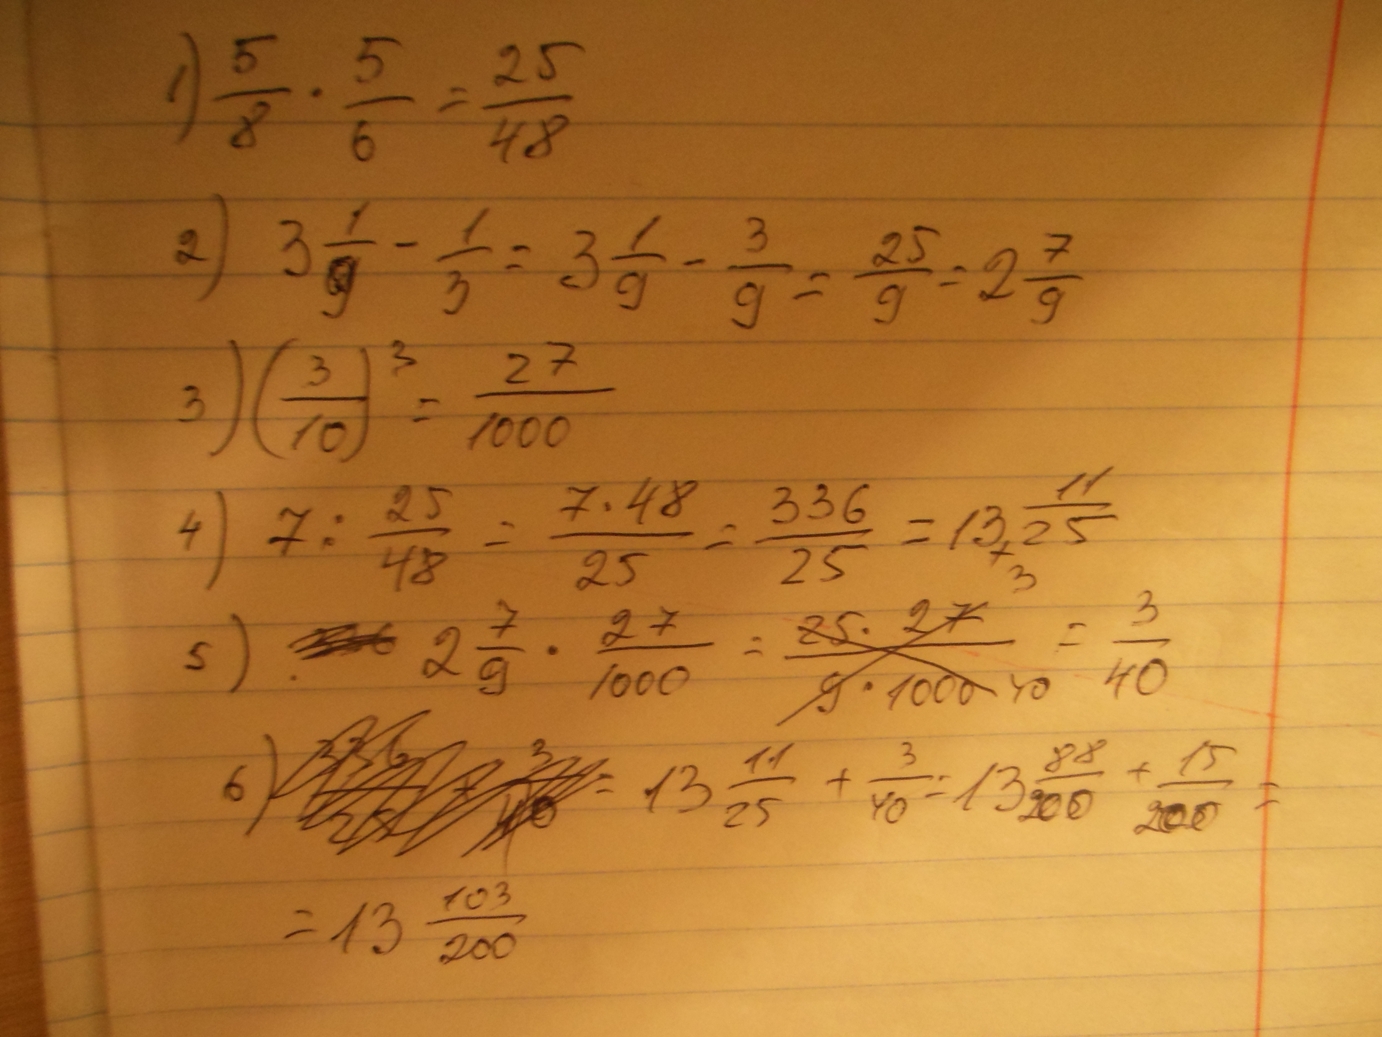 1) 5/8 · 5/6 = 25/48
2) 3 1/9 - 1/3 = 3 1/9 - 3/9 = 25/9 = 2 7/9
3) (3/10)³ = 27/1000
4) 7 : 25/48 = 7·48/25 = 336/25 = 13 11/25
5) 2 7/9 · 27/1000 = 25·27 3/9·1000 40 = 3/40
6) = 13 11/25 + 3/40 = 13 88/200 + 15/200 =
= 13 103/200